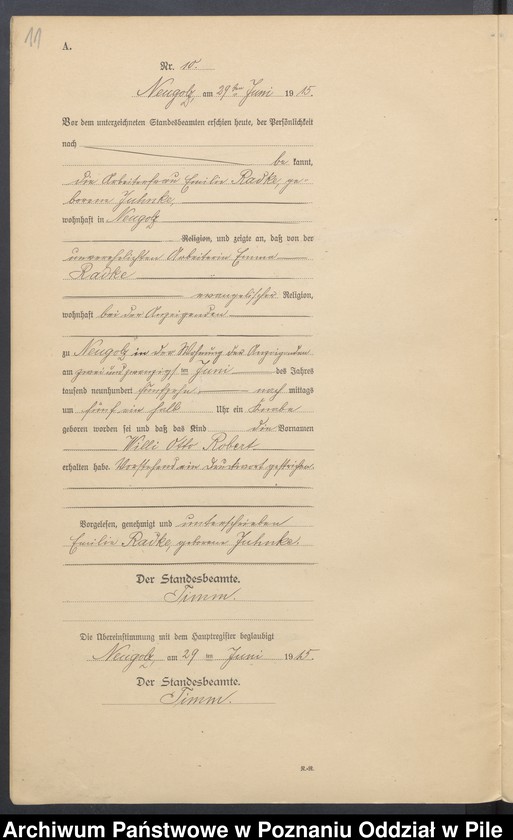 11
A.
Nr. 10.
Neugolz, am 29ten Juni 1915.
Vor dem unterzeichneten Standesbeamten erschien heute, der Persönlichkeit
nach
be kannt,
die Arbeiterfrau Emilie Radke, ge-
borene Juhnke,
wohnhaft in Neugolz
Religion, und zeigte an, daß von der
unverehelichten Arbeiterin Emma
Radke
evangelischer Religion,
wohnhaft bei der Anzeigenden
zu Neugolz in der Wohnung der Anzeigenden
am zweiundzwanzigsten Juni des Jahres
tausend neunhundert fünfzehn nach mittags
um fünf ein halb Uhr ein Knabe
geboren worden sei und daß das Kind die Vornamen
Willi Otto Robert
erhalten habe. Vorstehend ein Druckwort gestrichen.
Vorgelesen, genehmigt und unterschrieben
Emilie Radke, geborene Juhnke.
Der Standesbeamte.
Timm.
Die Übereinstimmung mit dem Hauptregister beglaubigt
Neugolz, am 29 ten Juni 1915.
Der Standesbeamte.
Timm.
R.-R.
Archiwum Państwowe w Poznaniu Oddział w Pile